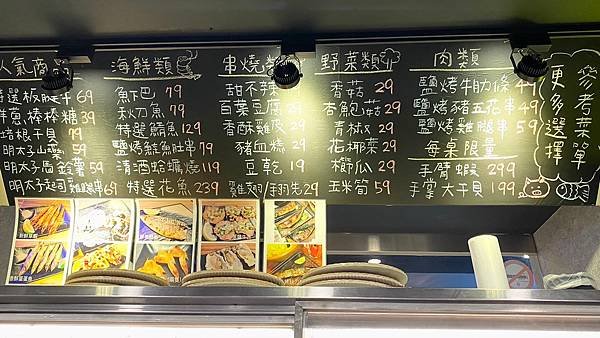 人氣商品
選板腱牛69
鮮魚棒棒糖39
培根干貝79
明太子山藥59
明太子鹹豬59
明太子起司雞腿串69
海鮮類
魚下巴79
秋刀魚79
特選鯖魚129
鹽烤鮭魚肚串79
清酒蛤蠣燒119
特選花魚239
串燒
甜不辣29
百葉豆腐29
香酥雞皮29
豬血糕29
豆乾19
雞翅/翅先29
野菜類
香菇29
杏鮑菇29
青椒29
花椰菜29
櫛瓜29
玉米筍59
肉類
鹽烤牛肋條49
鹽烤豬五花串49
鹽烤雞腿串59
每桌限量
手臂蝦299
手掌大干貝199
參考菜單
更多選擇